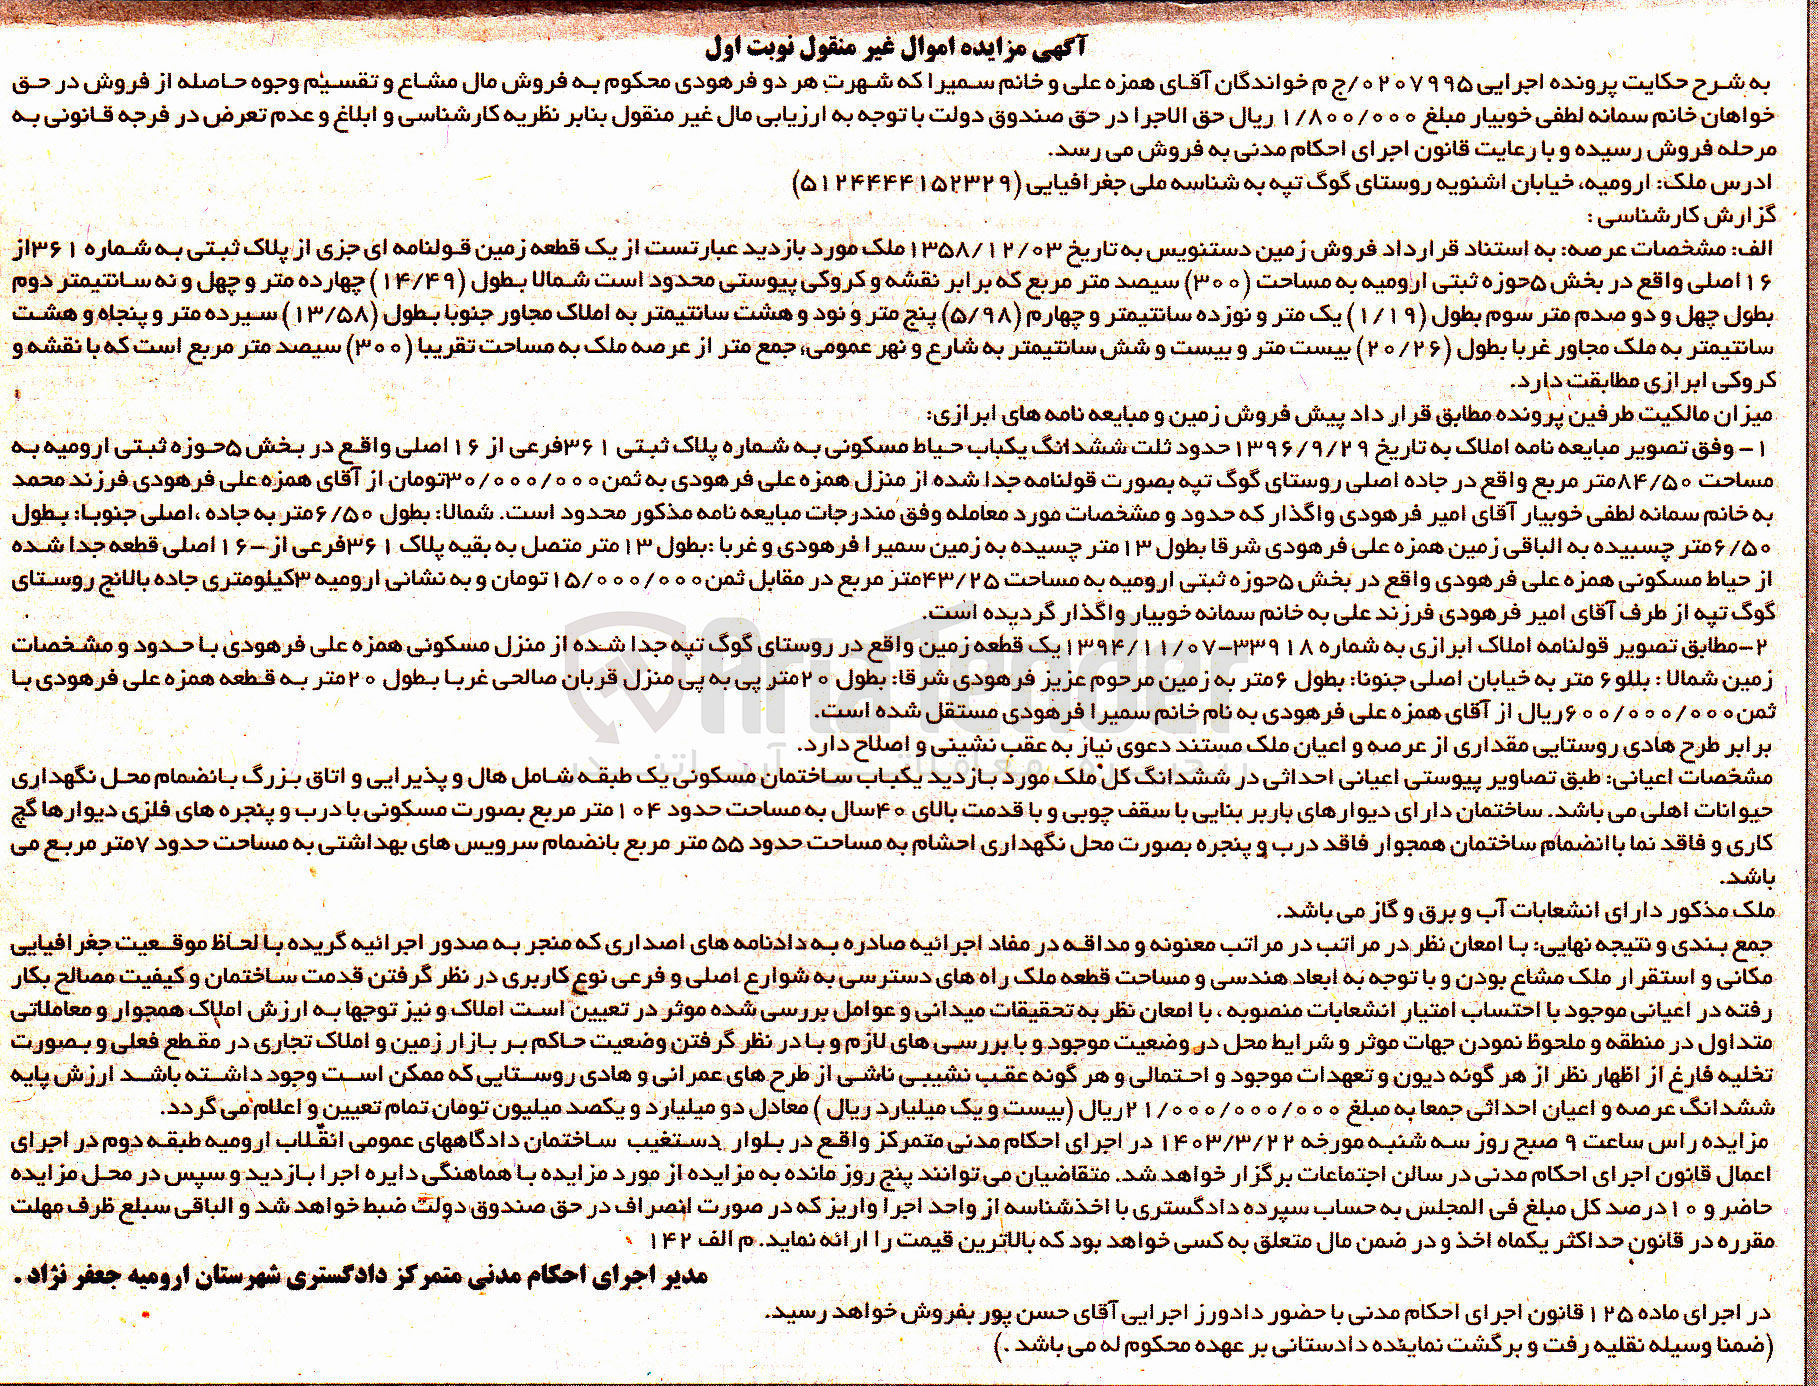 آگهی مزایده اموال غیر منقول نوبت اول
به شرح حکایت پرونده اجرایی ۰۲۰۷۹۹۵/ج م خواندگان آقای همزه علی و خانم سمیرا که شهرت هر دو فرهودی محکوم به فروش مال مشاع و تقسیم وجوه حاصله از فروش در حق
خواهان خانم سمانه لطفی خوبیار مبلغ ۱/۸۰۰/۰۰۰ ریال حق الاجرا در حق صندوق دولت با توجه به ارزیابی مال غیر منقول بنابر نظریه کارشناسی و ابلاغ و عدم تعرض در فرجه قانونی به
مرحله فروش رسیده و با رعایت قانون اجرای احکام مدنی به فروش می رسد.
ادرس ملک: ارومیه، خیابان اشنویه روستای گوگ تپه به شناسه ملی جغرافیایی (۵۱۲۴۴۴۴۱۵۲۳۲۹)
گزارش کارشناسی :
الف: مشخصات عرصه: به استناد قرارداد فروش زمین دستنویس به تاریخ ۱۳۵۸/۱۲/۰۳ ملک مورد بازدید عبارتست از یک قطعه زمین قولنامه ای جزی از پلاک ثبتی به شماره ۳۶۱از
۱۶ اصلی واقع در بخش ۵حوزه ثبتی ارومیه به مساحت (۳۰۰) سیصد متر مربع که برابر نقشه و کروکی پیوستی محدود است شمالا بطول (۱۴/۴۹) چهارده متر و چهل و نه سانتیمتر دوم
بطول چهل و دو صدم متر سوم بطول (۱/۱۹) یک متر و نوزده سانتیمتر و چهارم (۵/۹۸) پنج متر و نود و هشت سانتیمتر به املاک مجاور جنوبا بطول (۱۳/۵۸) سیرده متر و پنجاه و هشت
سانتیمتر به ملک مجاور غربا بطول (۲۰/۲۶) بیست متر و بیست و شش سانتیمتر به شارع و نهر عمومی، جمع متر از عرصه ملک به مساحت تقریبا (۳۰۰) سیصد متر مربع است که با نقشه و
کروکی ابرازی مطابقت دارد.
میزان مالکیت طرفین پرونده مطابق قرارداد پیش فروش زمین و مبایعه نامه های ابرازی:
۱- وفق تصویر مبایعه نامه املاک به تاریخ ۱۳۹۶/۹/۲۹حدود ثلث ششدانگ یکباب حیاط مسکونی به شماره پلاک ثبتی ۳۶۱فرعی از ۱۶ اصلی واقع در بخش ۵حوزه ثبتی ارومیه به
مساحت ۸۴/۵۰متر مربع واقع در جاده اصلی روستای گوگ تپه بصورت قولنامه جدا شده از منزل همزه علی فرهودی به ثمن۳۰/۰۰۰/۰۰۰تومان از آقای همزه علی فرهودی فرزند محمد
به خانم سمانه لطفی خوبیار آقای امیر فرهودی واگذار که حدود و مشخصات مورد معامله وفق مندرجات مبایعه نامه مذکور محدود است. شمالا: بطول ۶/۵۰متر به جاده ،اصلی جنوبا: بطول
۶/۵۰متر چسبیده به الباقی زمین همزه علی فرهودی شرقا بطول ۱۳متر چسیده به زمین سمیرا فرهودی و غربا :بطول ۱۳متر متصل به بقیه پلاک ۳۶۱فرعی از-۱۶ اصلی قطعه جدا شده
از حیاط مسکونی همزه علی فرهودی واقع در بخش ۵حوزه ثبتی ارومیه به مساحت ۴۳/۲۵متر مربع در مقابل ثمن۱۵/۰۰۰/۰۰۰تومان و به نشانی ارومیه ۳کیلومتری جاده بالانج روستای
گوگ تپه از طرف آقای امیر فرهودی فرزند علی به خانم سمانه خوبیار واگذار گردیده است.
۲-مطابق تصویر قولنامه املاک ابرازی به شماره ۳۳۹۱۸-۱۳۹۴/۱۱/۰۷یک قطعه زمین واقع در روستای گوگ تپه جدا شده از منزل مسکونی همزه علی فرهودی با حدود و مشخصات
زمین شمالا : بللو۶ متر به خیابان اصلی جنونا: بطول ۶متر به زمین مرحوم عزیز فرهودی شرقا: بطول ۲۰متر پی به پی منزل قربان صالحی غربا بطول ۲۰متر به قطعه همزه علی فرهودی با
ثمن۶۰۰/۰۰۰/۰۰۰ریال از آقای همزه علی فرهودی به نام خانم سمیرا فرهودی مستقل شده است.
برابر طرح هادی روستایی مقداری از عرصه و اعیان ملک مستند دعوی نیاز به عقب نشینی و اصلاح دارد.
مشخصات اعیانی: طبق تصاویر پیوستی اعیانی احداثی در ششدانگ کل ملک مورد بازدید یکباب ساختمان مسکونی یک طبقه شامل هال و پذیرایی و اتاق بزرگ بانضمام محل نگهداری
حیوانات اهلی می باشد. ساختمان دارای دیوارهای باربر بنایی با سقف چوبی و با قدمت بالای ۴۰سال به مساحت حدود ۱۰۴متر مربع بصورت مسکونی با درب و پنجره های فلزی دیوارها گچ
کاری و فاقد نما باانضمام ساختمان همجوار فاقد درب و پنجره بصورت محل نگهداری احشام به مساحت حدود ۵۵ متر مربع بانضمام سرویس های بهداشتی به مساحت حدود ۷متر مربع می
باشد.
ملک مذکور دارای انشعابات آب و برق و گاز می باشد.
جمع بندی و نتیجه نهایی: با امعان نظر در مراتب در مراتب معنونه و مداقه در مفاد اجرائیه صادره به دادنامه های اصداری که منجر به صدور اجرائیه گریده با لحاظ موقعیت جغرافیایی
مکانی و استقرار ملک مشاع بودن و با توجه به ابعاد هندسی و مساحت قطعه ملک راه های دسترسی به شوارع اصلی و فرعی نوع کاربری در نظر گرفتن قدمت ساختمان و کیفیت مصالح بکار
رفته در اعیانی موجود با احتساب امتیاز انشعابات منصوبه ، با امعان نظر به تحقیقات میدانی و عوامل بررسی شده موثر در تعیین است املاک و نیز توجها به ارزش املاک همجوار و معاملاتی
متداول در منطقه و ملحوظ نمودن جهات موثر و شرایط محل در وضعیت موجود و با بررسی های لازم و با در نظر گرفتن وضعیت حاکم بر بازار زمین و املاک تجاری در مقطع فعلی و بصورت
تخلیه فارغ از اظهار نظر از هر گونه دیون و تعهدات موجود و احتمالی و هر گونه عقب نشیبی ناشی از طرح های عمرانی و هادی روستایی که ممکن است وجود داشته باشد ارزش پایه
ششدانگ عرصه و اعیان احداثی جمعا به مبلغ ۲۱/۰۰۰/۰۰۰/۰۰۰ریال (بیست و یک میلیارد ریال ) معادل دو میلیارد و یکصد میلیون تومان تمام تعیین و اعلام می گردد.
مزایده راس ساعت ۹ صبح روز سه شنبه مورخه ۱۴۰۳/۳/۲۲ در اجرای احکام مدنی متمرکز واقع در بلوار دستغیب ساختمان دادگاههای عمومی انقلاب ارومیه طبقه دوم در اجرای
اعمال قانون اجرای احکام مدنی در سالن اجتماعات برگزار خواهد شد. متقاضیان می توانند پنج روز مانده به مزایده از مورد مزایده با هماهنگی دایره اجرا بازدید و سپس در محل مزایده
حاضر و ۱۰درصد کل مبلغ فی المجلس به حساب سپرده دادگستری با اخذشناسه از واحد اجرا واریز که در صورت انصراف در حق صندوق دولت ضبط خواهد شد و الباقی سبلع ظرف مهلت
مقرره در قانون حداکثر یکماه اخذ و در ضمن مال متعلق به کسی خواهد بود که بالاترین قیمت را ارائه نماید. م الف ۱۴۲
مدیر اجرای احکام مدنی متمرکز دادگستری شهرستان ارومیه جعفر نژاد .
در اجرای ماده ۱۲۵ قانون اجرای احکام مدنی با حضور دادورز اجرایی آقای حسن پور بفروش خواهد رسید.
(ضمنا وسیله نقلیه رفت و برگشت نماینده دادستانی بر عهده محکوم له می باشد .)
AriaTender